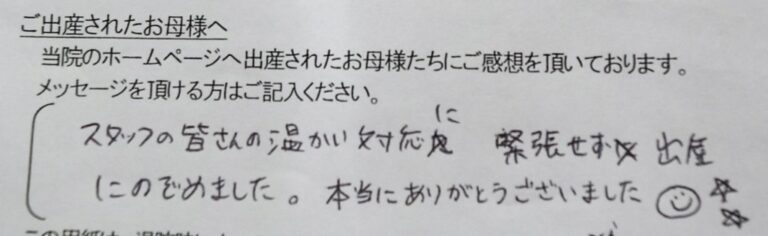 ご出産されたお母様へ
当院のホームページへ出産されたお母様たちにご感想を頂いております。
メッセージを頂ける方はご記入ください。
スタッフの皆さんの温かい対応に 緊張せず 出産
にのぞめました。本当にありがとうございました